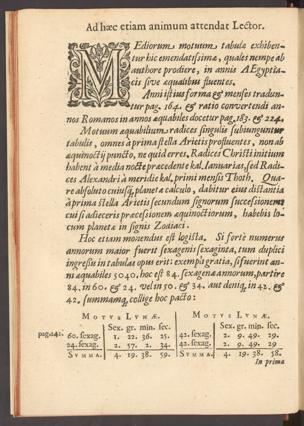 Ad hæc etiam animum attendat Lector.
MEdiorum motuum tabulæ exhibentur
hic emendatissimæ, quales nempe ab
authore prodiere, in annis AEgyptiacis
sive æqualibus fluentes.
Anni istius forma & menses traduntur
pag. 164. & ratio convertendi annos
Romanos in annos æquabiles docetur pag. 183. & 224.
Motuum æquabilium radices singulis subiunguntur
tabulis, omnes à prima stella Arietis profluentes, non ab
æquinoctij puncto, ne quid erres, Radices Christi initium
habent à media nocte præcedente kal. Januarias, sed Radices
Alexandri à meridie kal. primi mensis Thoth. Quare
absoluto cuiusq; planetæ calculo, dabitur eius distantia
à prima stella Arietis secundum signorum successionem
cui si adieceris præcessionem æquinoctiorum, habebis locum
planetæ in signis Zodiaci.
Hoc etiam monendus est logista. Si fortè numerus
annorum maior fuerit sexagenis sexaginta, tum duplici
ingressu in tabulas opus erit: exempli gratia, si fuerint anni
æquabiles 5040. hoc est 84. sexagenæ annorum, partire
84. in 60. & 24. vel in 50. & 34. aut deniq; in 42. &
42. summamq; collige hoc pacto:
MOTUS LUNÆ. MOTUS LUNÆ.
Sex. gr. min. sec. Sex. gr. min. sec.
pag. 242. 60. sexag. 1. 22. 36. 25. 42. sexag. 2. 9. 49. 29
24. sexag. 2. 57. 2. 34. 42. sexag. 2. 9. 49. 29
SUMMA. 4. 19. 38. 59. SUMMA. 4. 19. 38. 58.
In prima